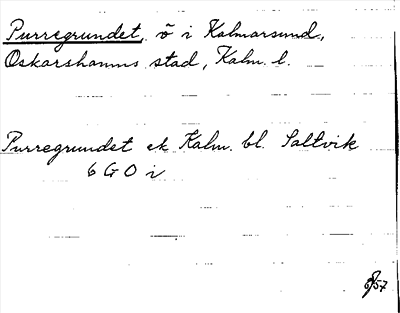 Purregrundet, ö i Kalmarsund,
Oskarshamns stad, Kalm. l.
Purregrundet ek Kalm. bl. Saltvik
6 G O i